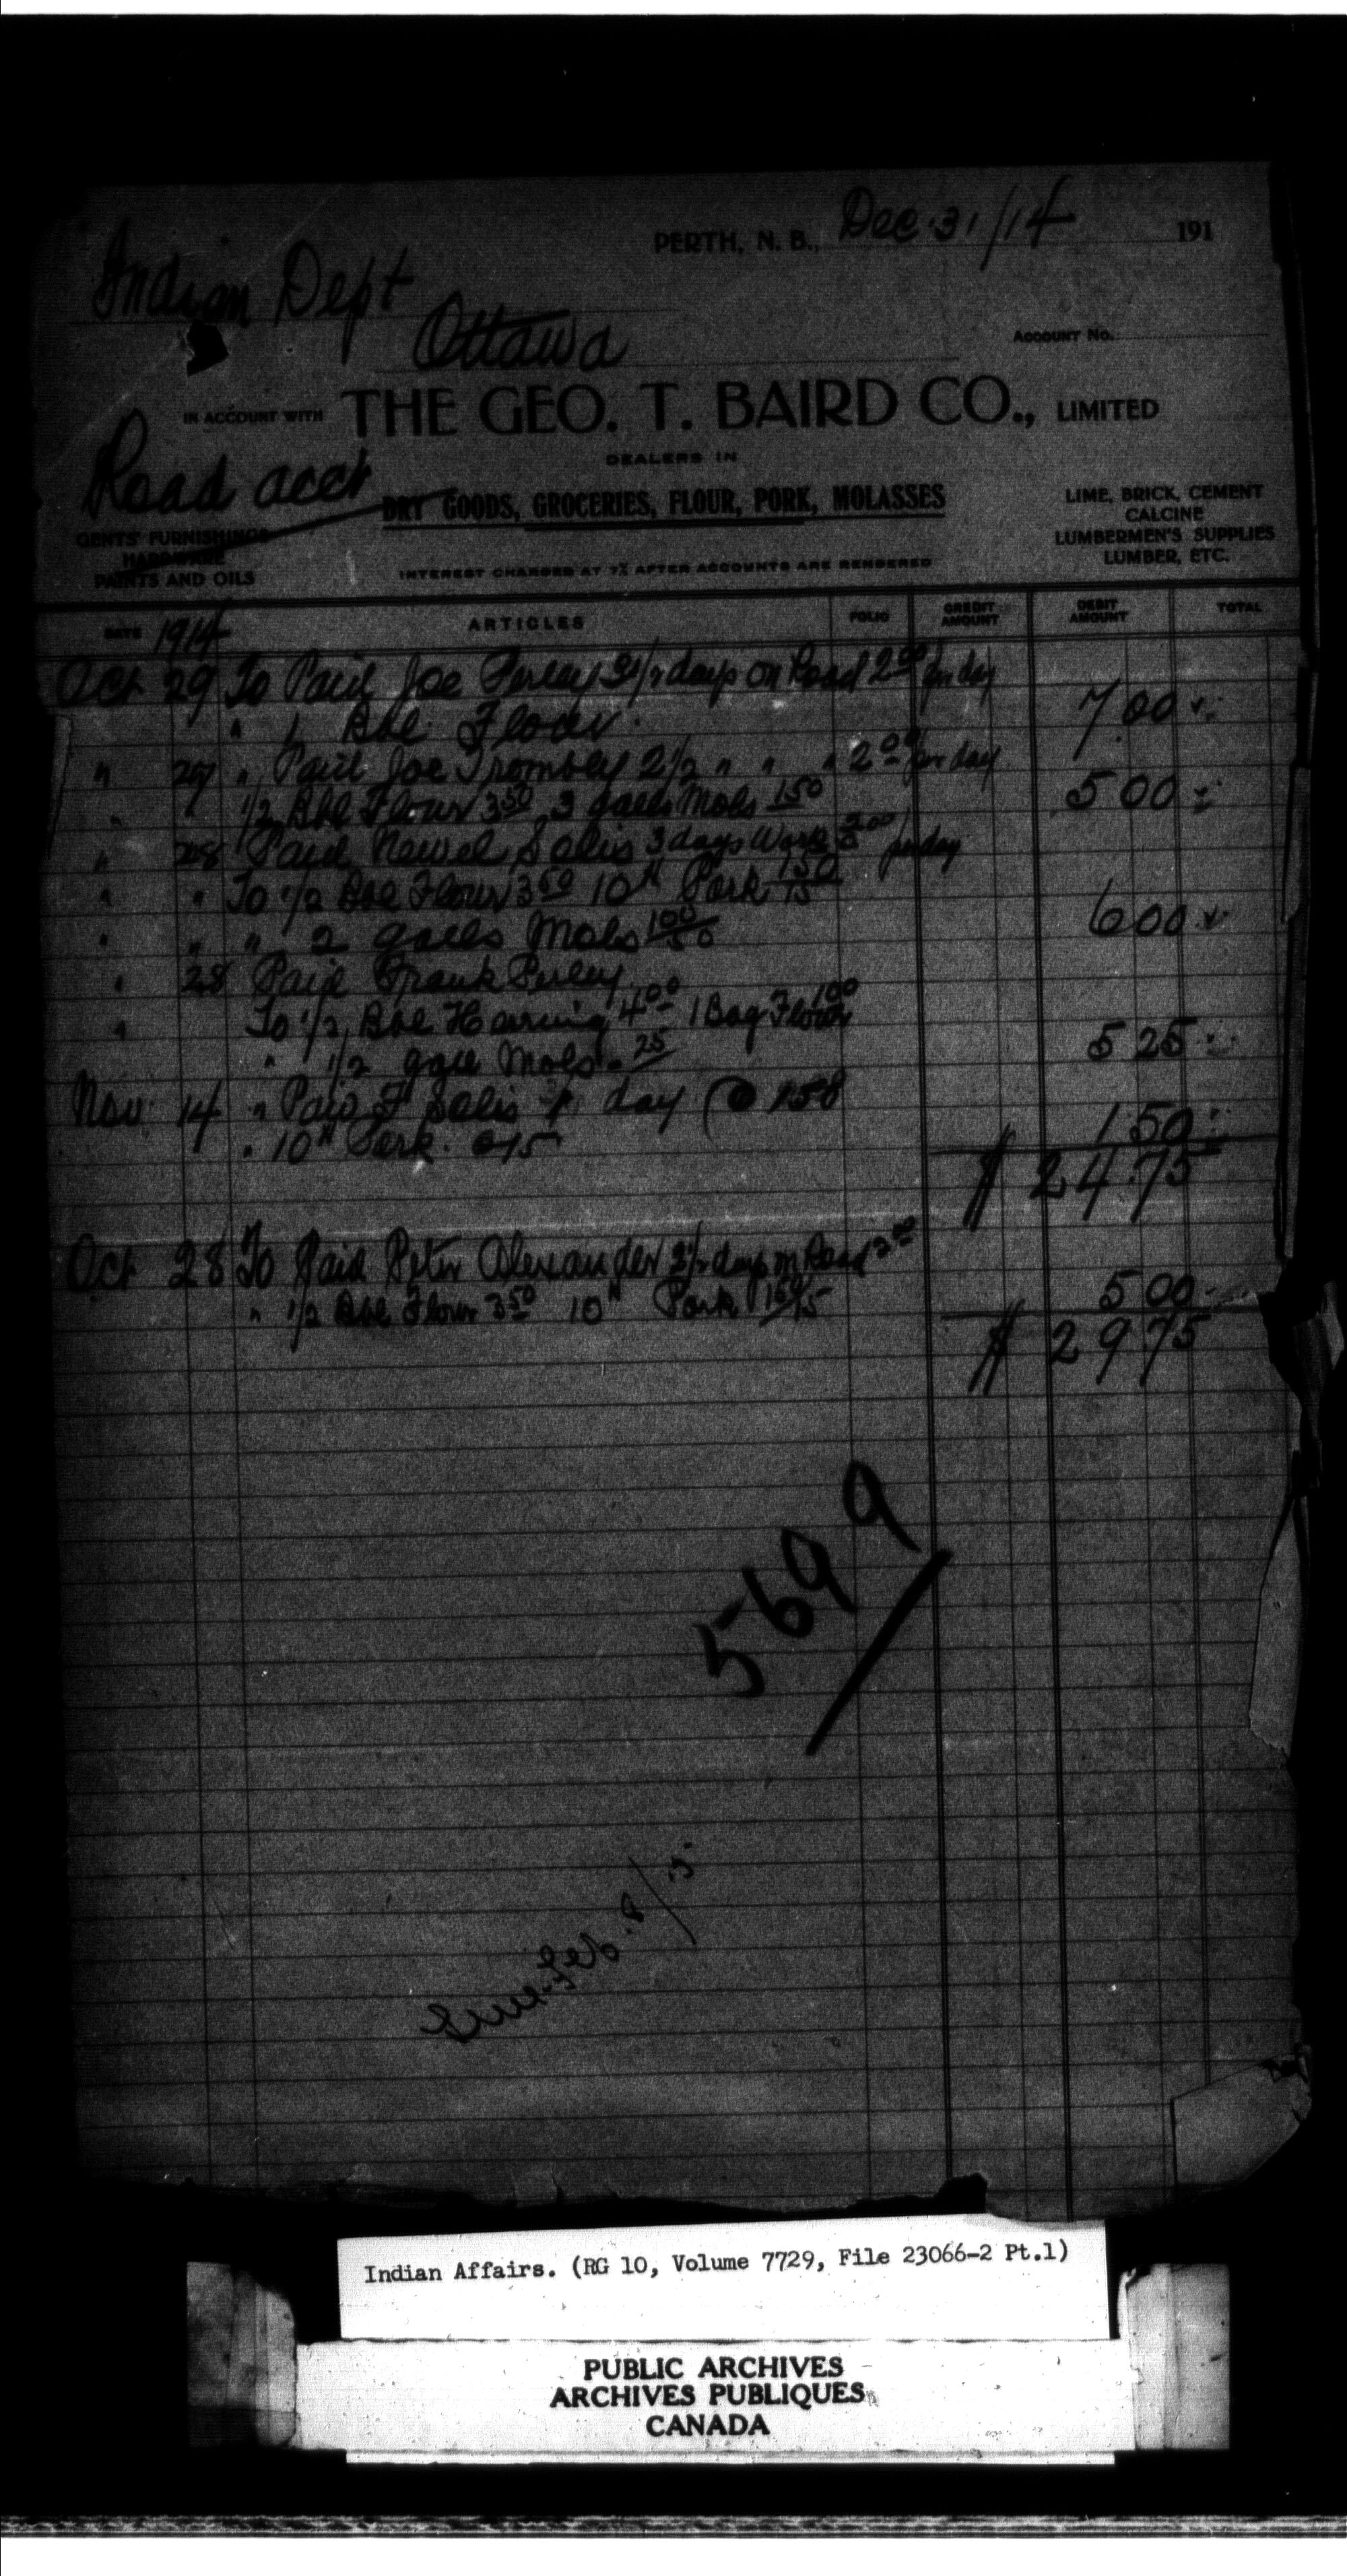 PERTH, N. B., Dec 31/14 191
Indian Dept
Ottawa
ACCOUNT NO.
IN ACCOUNT WITH THE GEO. T. BAIRD CO., LIMITED
DEALERS IN
Road acct
DRY GOODS, GROCERIES, FLOUR, PORK, MOLASSES
GENTS' FURNISHINGS
HARDWARE
PAINTS AND OILS
LIME, BRICK, CEMENT
CALCINE
LUMBERMEN'S SUPPLIES
LUMBER, ETC.
INTEREST CHARGED AT 7% AFTER ACCOUNTS ARE RENDERED
DATE 1914 ARTICLES FOLIO CREDIT AMOUNT DEBIT AMOUNT TOTAL
Oct 29 To Paid Joe Perley 3 1/2 days on Road 2 00 per day
" 1 Bbl Flour 7 00
" 27 " Paid Joe Trombley 2 1/2 " " " 2 00 per day
" 1/2 Bbl Flour 3 50 3 galls Mols 1 50 5 00
" 28 Paid Newel Solis 3 days Work 2 00 per day
" " To 1/2 Bbl Flour 3 50 10 # Pork 1 50 / 15
" " " 2 galls Mols 1 00 / 50 6 00
" 28 Paid Frank Perley
" To 1/2 Bbl Herring 4 00 1 Bag Flour 1 00
" 1/2 gall Mols 25 5 25
Nov 14 " Paid F Solis 1 day @ 1 50
" 10 # Pork @ 15 1 50
$ 24.75
Oct 28 To Paid Peter Alexander 2 1/2 days on Road 2 00
" 1/2 Bbl Flour 3 50 10 # Pork 1 50 / 15 5 00
$ 29 75
5699
Feb. 8/15
Indian Affairs. (RG 10, Volume 7729, File 23066-2 Pt.1)
PUBLIC ARCHIVES
ARCHIVES PUBLIQUES
CANADA